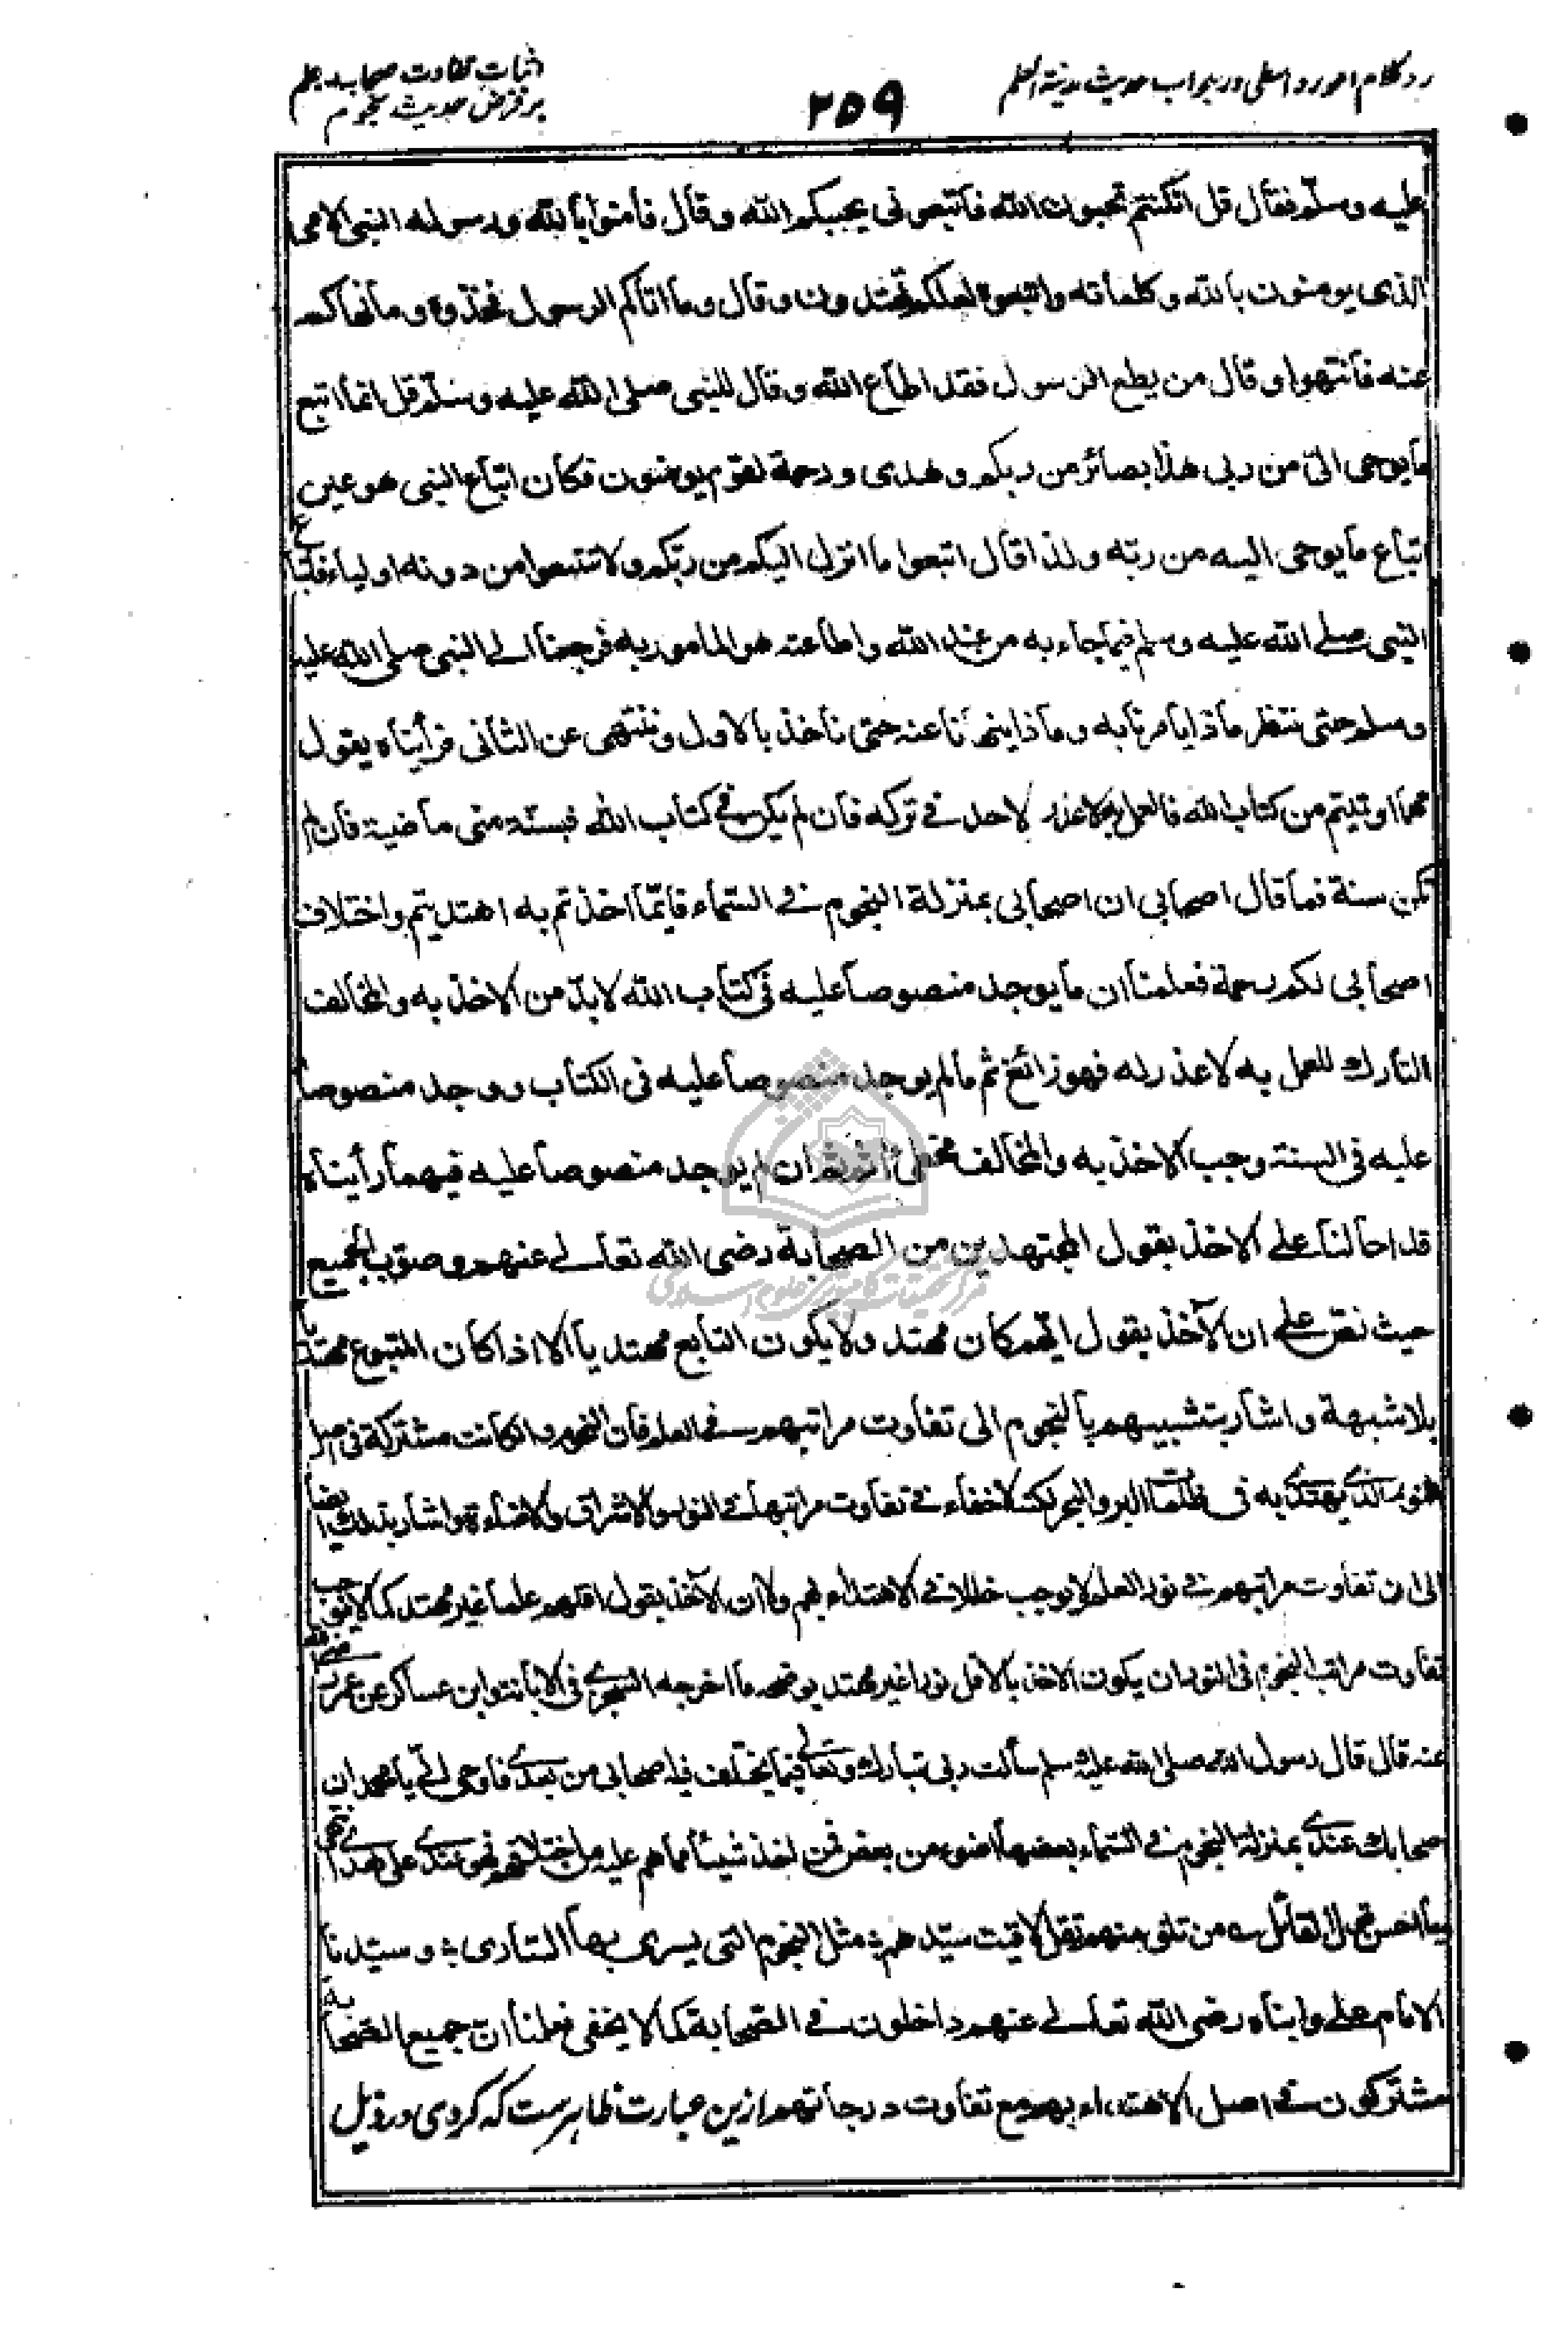 رد کلام اعور واسطی در جواب حدیث مدینة العلم
۲۵۹
اثبات تفاوت صحابه در علم
بر فرض حدیث نجوم
عليه وسلم فقال قل ان كنتم تحبون الله فاتبعونى يحببكم الله وقال فآمنوا بالله ورسوله النبى الامى
الذى يومنون بالله وكلماته واتبعوه لعلكم تهتدون وقال وما اتاكم الرسول فخذوه وما نهاكم
عنه فانتهوا وقال من يطع الرسول فقد اطاع الله وقال للنبى صلى الله عليه وسلم قل انما اتبع
ما يوحى الىّ من ربى هذا بصائر من ربكم وهدى ورحمة لقوم يومنون فكان اتباع النبى هو عين
اتباع ما يوحى اليه من ربه ولذا قال اتبعوا ما انزل اليكم من ربكم ولا تتبعوا من دونه اولياء فاتباع
النبى صلى الله عليه وسلم فيما جاء به من عند الله واطاعته هو المامور به فرجعنا الى النبى صلى الله عليه
وسلم حتى ننتظر ما ذا يامرنا به وما ذا ينهانا عنه حتى ناخذ بالاول وننتهى عن الثانى فرأيناه يقول
مهما اوتيتم من كتاب الله فالعمل به لا عذر لاحد فى تركه فان لم يكن فى كتاب الله فبسنة منى ماضية فان لم
تكن سنة فما قال اصحابى ان اصحابى بمنزلة النجوم فى السماء فايّما اخذتم به اهتديتم واختلاف
اصحابى لكم رحمة فعلمنا ان ما يوجد منصوصا عليه فى كتاب الله لابدّ من الاخذ به والمخالف
التارك للعمل به لا عذر له فهو زائغ ثم ما لم يوجد منصوصا عليه فى الكتاب ووجد منصوصا
عليه فى السنة وجب الاخذ به والمخالف مخطئ ثم ان لم يوجد منصوصا عليه فيهما رأيناه
قد احالنا على الاخذ بقول المجتهدين من الصحابة رضى الله تعالى عنهم وصوّب الجميع
حيث نصّ على ان الآخذ بقول ايّهم كان مهتد ولا يكون التابع مهتديا الا اذا كان المتبوع مهتديا
بلا شبهة واشار بتشبيههم بالنجوم الى تفاوت مراتبهم فى العلم فان النجوم وان كانت مشتركة فى اصل
النور الذى يهتدى به فى ظلمات البر والبحر لكنه لا خفاء فى تفاوت مراتبها فى النور والاشراق والاضاءة واشار بذلك ايضا
الى ان تفاوت مراتبهم فى نور العلم لا يوجب خللا فى الاهتداء بهم ولا ان الآخذ بقول اقلهم علما غير مهتد كما لا يوجب
تفاوت مراتب النجوم فى النور ان يكون الاخذ بالاقل نورا غير مهتد يوضحه ما اخرجه السجزى فى الابانة وابن عساكر عن عمر رضى الله
عنه قال قال رسول الله صلى الله عليه وسلم سألت ربى تبارك وتعالى فيما يختلف فيه اصحابى من بعدى فاوحى الىّ يا محمد ان
اصحابك عندى بمنزلة النجوم فى السماء بعضها اضوء من بعض فمن اخذ شيئا مما هم عليه من اختلافهم فهو عندى على هدى انتهى
وما احسن قول القائل من تلق منهم تقل لاقيت سيّدهم مثل النجوم التى يسرى بها السارى وسيّدنا
الامام على وابناه رضى الله تعالى عنهم داخلون فى الصحابة كما لا يخفى فعلمنا انّ جميع الصحابة
مشتركون فى اصل الاهتداء بهم مع تفاوت درجاتهم ازین عبارت ظاهرست که کردی در ذیل
مرکز تحقیقات کامپیوتری علوم اسلامی